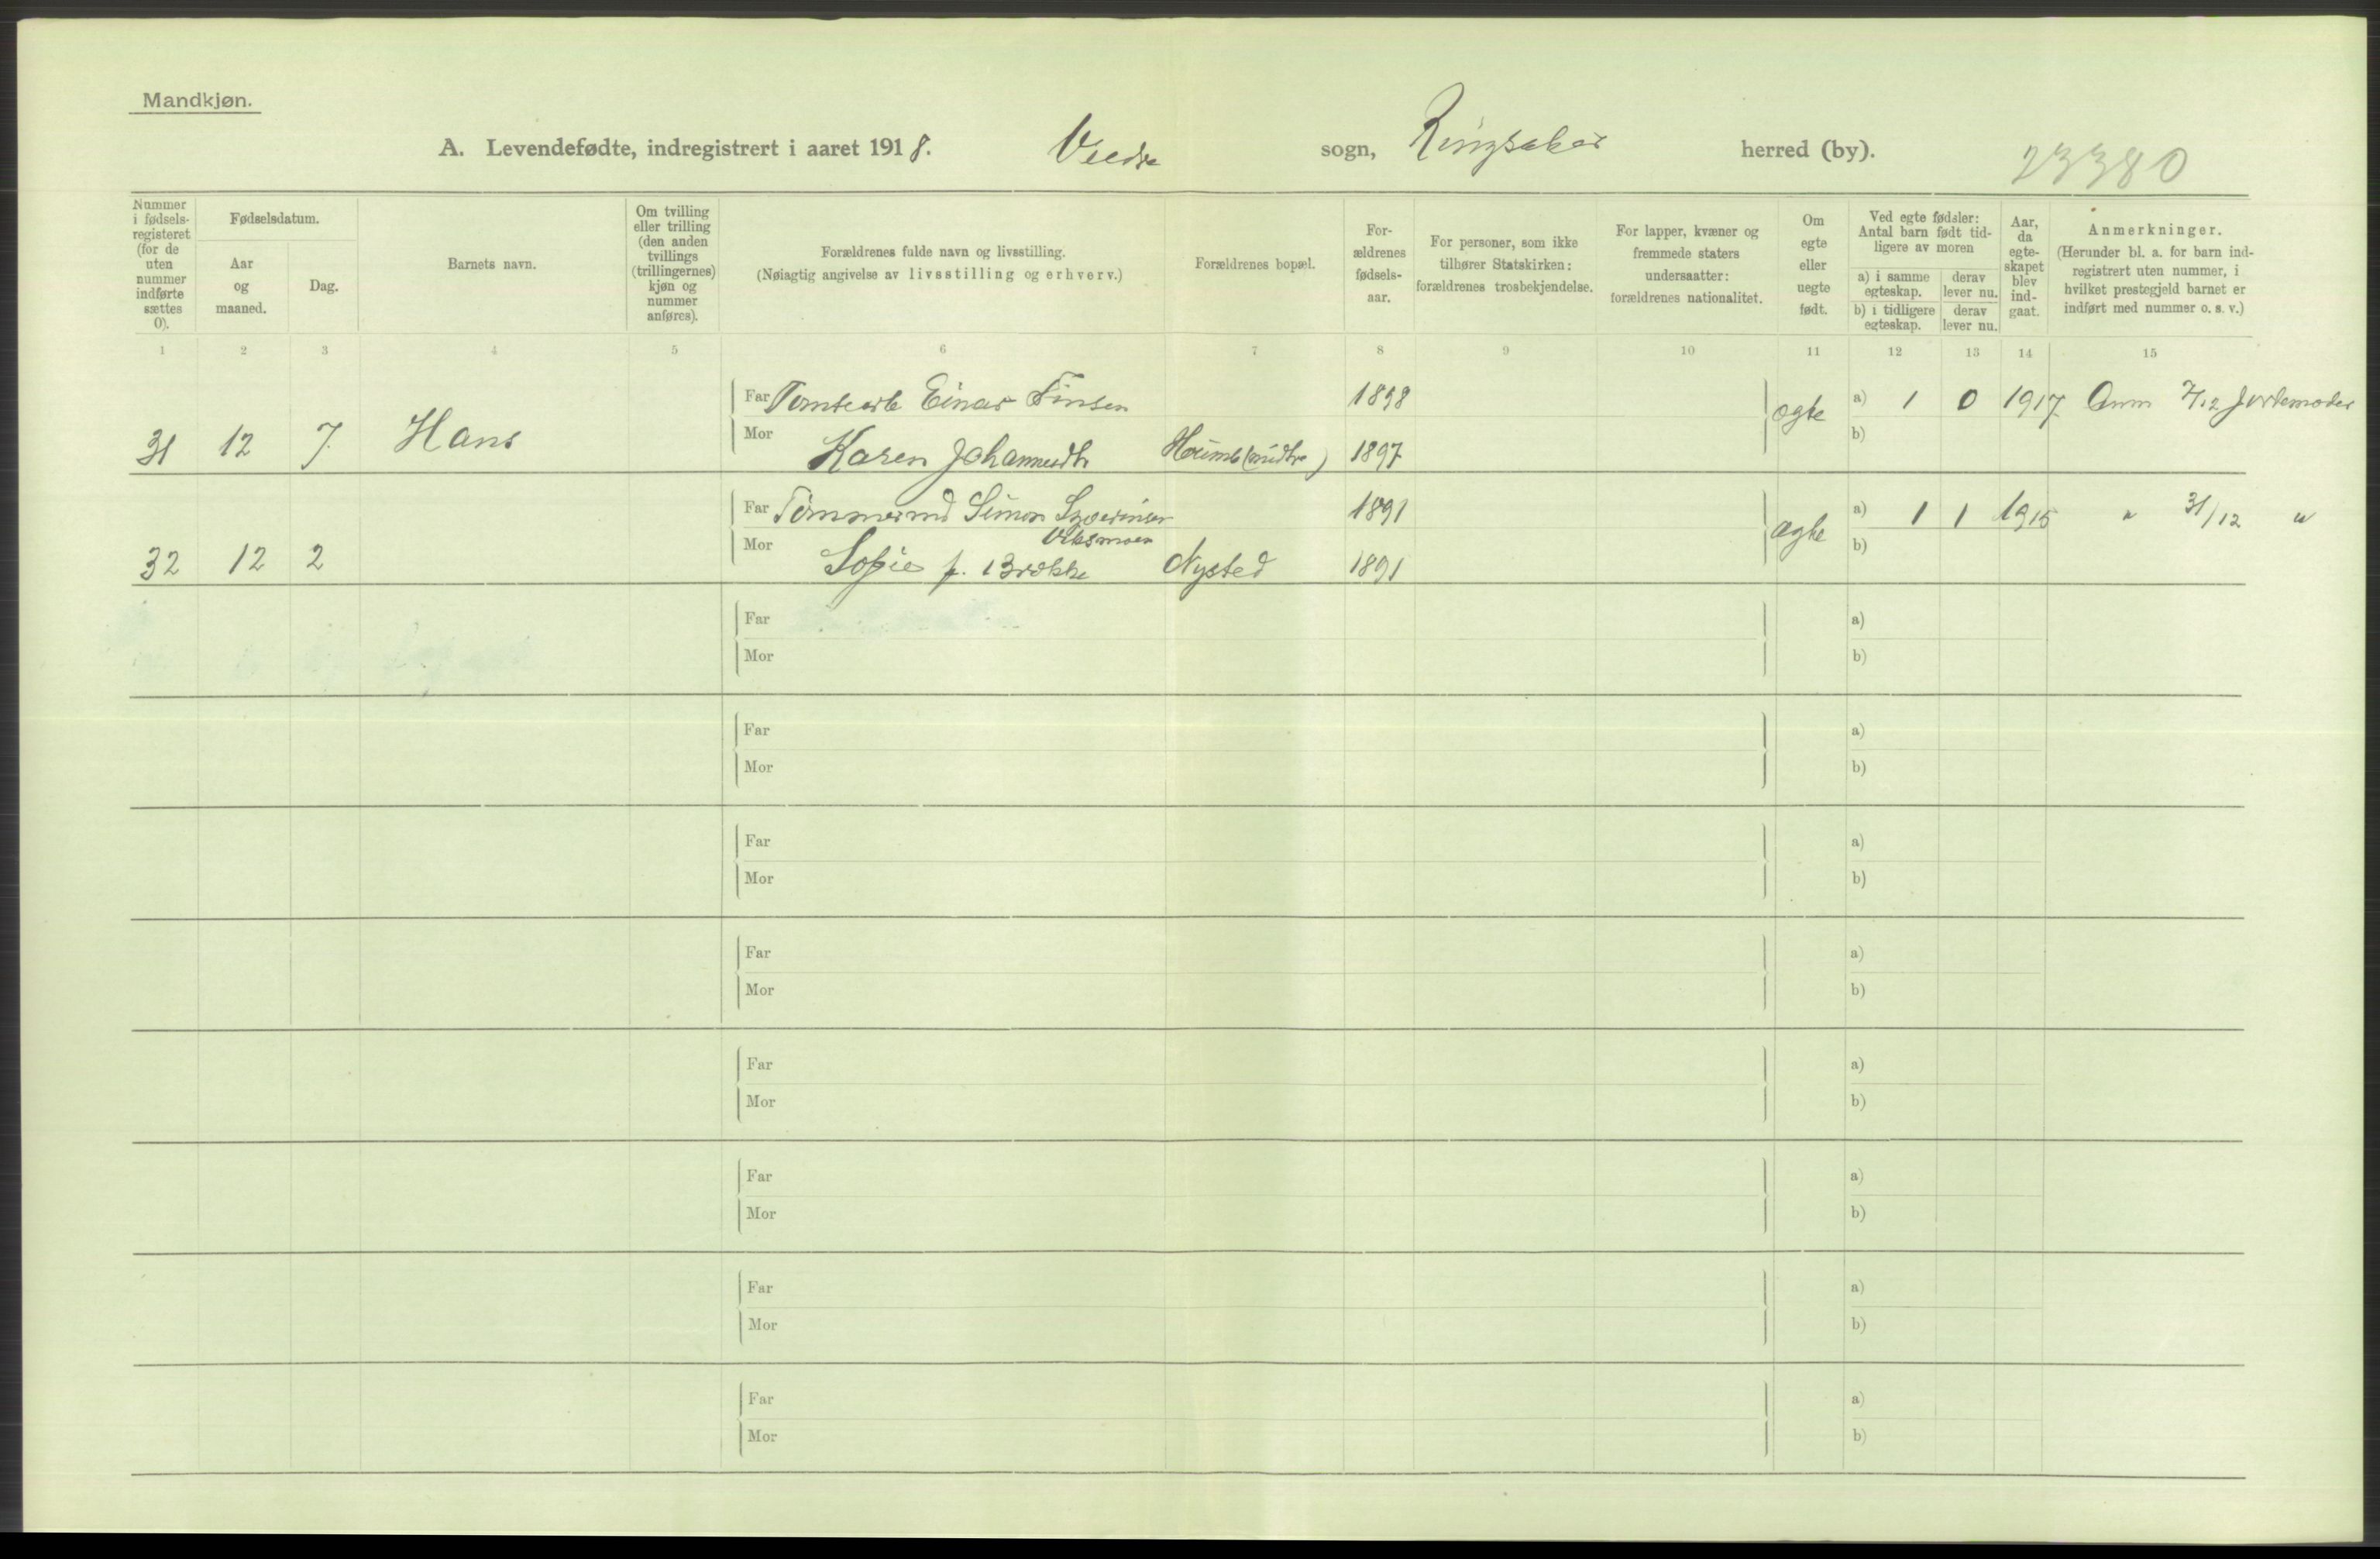 Mandkjøn.
A. Levendefødte, indregistrert i aaret 1918. Veldre sogn, Ringsaker herred (by).
23380
Nummer i fødsels-registeret (for de uten nummer indførte sættes 0).
Fødselsdatum.
Aar og maaned.
Dag.
Barnets navn.
Om tvilling eller trilling (den anden tvillings (trillingernes) kjøn og nummer anføres).
Forældrenes fulde navn og livsstilling.
(Nøiagtig angivelse av livsstilling og erhverv.)
Forældrenes bopæl.
For-ældrenes fødsels-aar.
For personer, som ikke tilhører Statskirken: forældrenes trosbekjendelse.
For lapper, kvæner og fremmede staters undersaatter: forældrenes nationalitet.
Om egte eller uegte født.
Ved egte fødsler: Antal barn født tid-ligere av moren
a) i samme egteskap.
derav lever nu.
b) i tidligere egteskap.
derav lever nu.
Aar, da egte-skapet blev ind-gaat.
Anmerkninger.
(Herunder bl. a. for barn ind-registrert uten nummer, i hvilket prestegjeld barnet er indført med nummer o. s. v.)
1 2 3 4 5 6 7 8 9 10 11 12 13 14 15
Far Tomtearb Einar Finsen 1898 a) 1 0 1917 Anm 7/12 Jordemoder
31 12 7. Hans Mor Karen Johannesdtr (midtre) 1897 egte b)
Far Tømmermd Simon Syverinsen 1891 a) 1 1 1915 " 31/12 "
32 12 2 Mor Sofie f. Brække Nysted 1891 egte b)
Far a)
Mor b)
Far a)
Mor b)
Far a)
Mor b)
Far a)
Mor b)
Far a)
Mor b)
Far a)
Mor b)
Far a)
Mor b)
Far a)
Mor b)